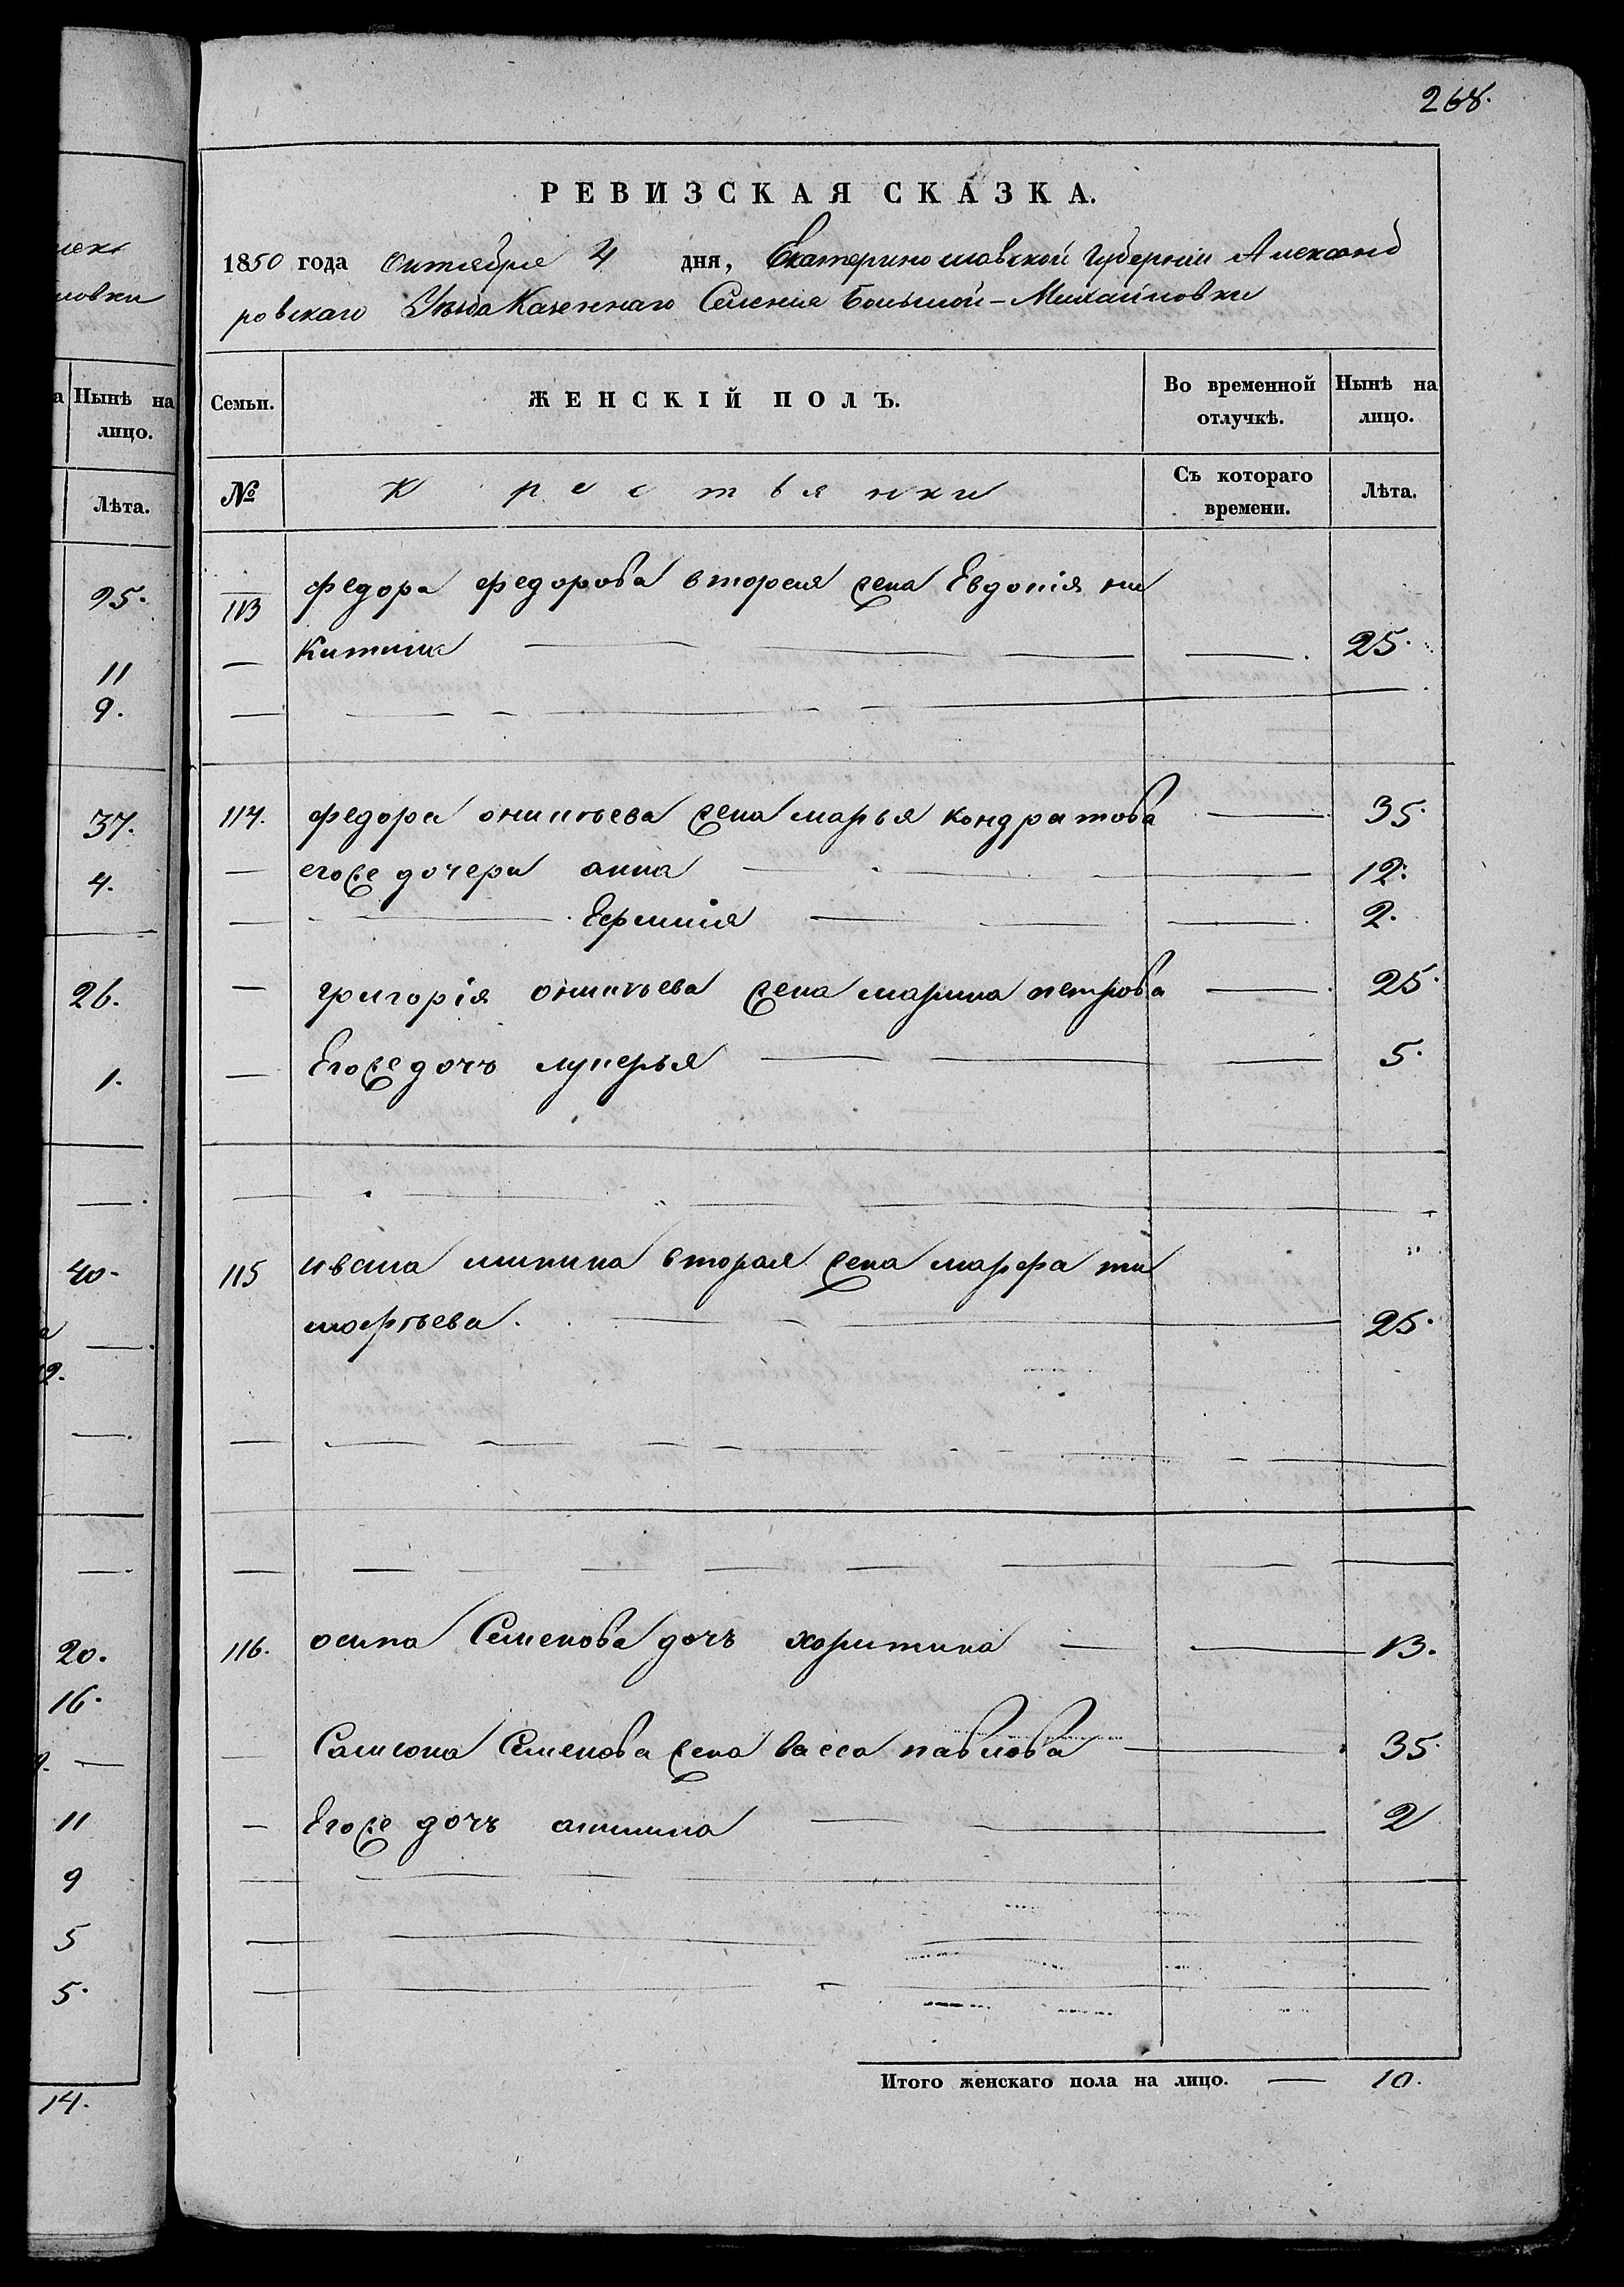 лекс
ловки
а
Нынѣ на
лицо.
Лѣта.
25.
11
9.
37.
4.
26.
1.
40-
20.
16.
11
9
5
5.
14.
268.
РЕВИЗСКАЯ СКАЗКА.
1850 года октября 4 дня, Екатеринославской Губерніи Александ
ровскаго Уѣзда Казеннаго Селенія Большой-Михайловки
Семьи.
ЖЕНСКІЙ ПОЛЪ.
Во временной
отлучкѣ.
Нынѣ на
лицо.
№
Крестьянки
Съ котораго
времени.
Лѣта.
113 федора федорова вторая жена Евдокія ни
китина 25.
114. федора онипъева жена марья кондратова 35.
егоже дочери анна 12.
Ефимия 2.
григорія онипъева жена марина петрова 25.
Егоже дочъ лукерья 5.
115 ивана минина вторая жена марфа ти
мофъева. 25.
116. осипа Семенова дочъ харитина 13.
Самсона Семенова жена васса павлова 35.
Егоже дочъ аннина 2
Итого женскаго пола на лицо. — 10.